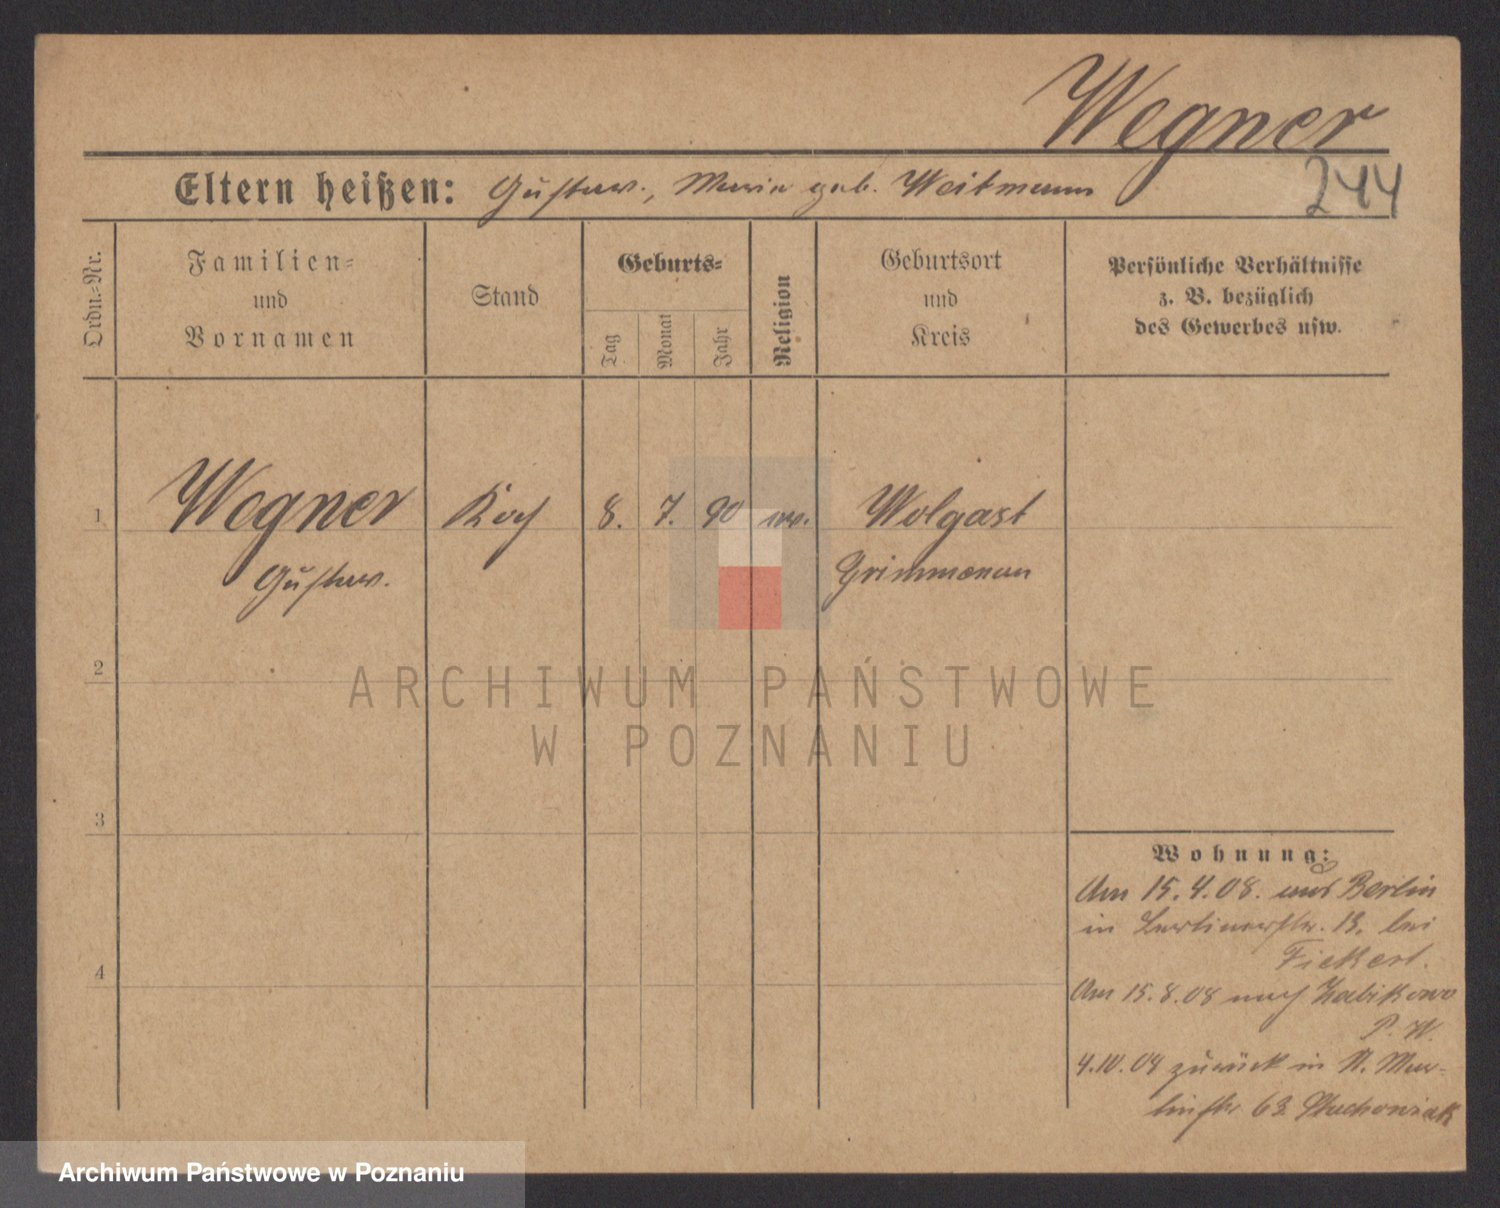 Wegner
244
Eltern heißen: Gustav., Maria geb. Weitmann
Ordn.-Nr.
Familien-
und
Vornamen
Stand
Geburts-
Tag
Monat
Jahr
Religion
Geburtsort
und
Kreis
Persönliche Verhältnisse
z. B. bezüglich
des Gewerbes usw.
1
Wegner Koch 8. 7. 90 ev. Wolgast
Gustav. Grimmenau
2
ARCHIWUM PAŃSTWOWE
W POZNANIU
3
Wohnung:
Am 15.4.08. aus Berlin
in Berlinerstr. 13. bei
Fiekert.
4
Am 15.8.08 nach Zabikowo
P. W.
4.10.09 zurück in St. Mar-
tinstr 63
Archiwum Państwowe w Poznaniu